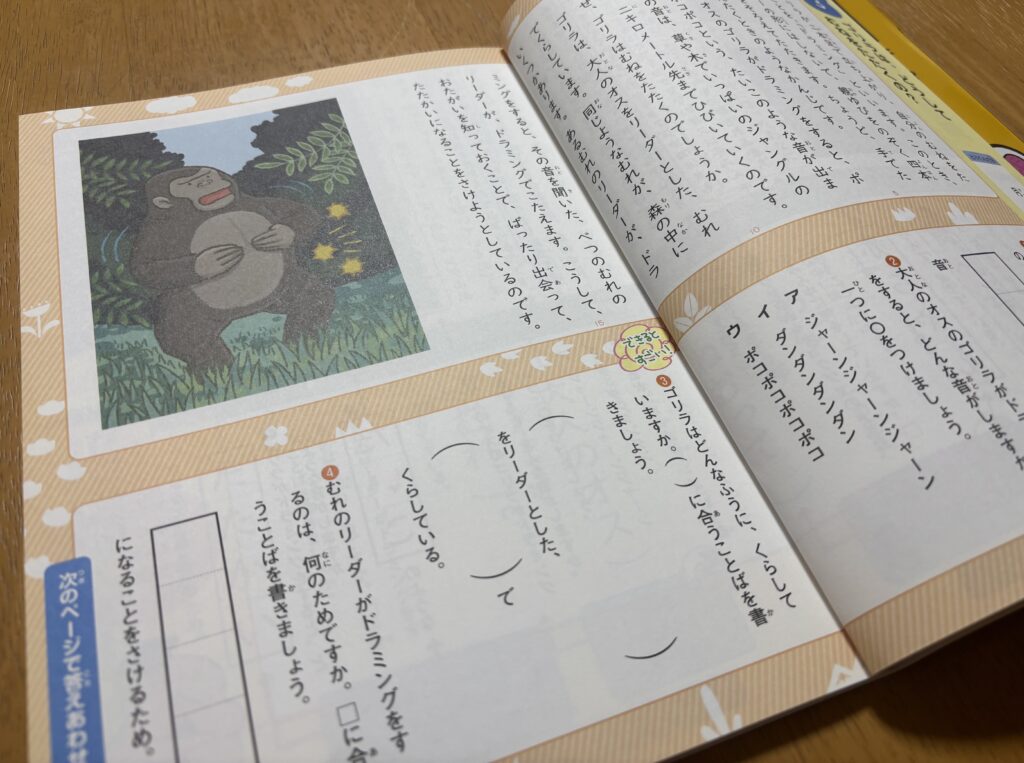 たくときのようなかんじです。
オスのゴリラがドラミングをすると、ポ
コポコという、たいこのような音が出ま
の音は、草や木でいっぱいのジャングルの
二キロメートル先までひびいていくのです。
ぜ、ゴリラはむねをたたくのでしょうか。
ゴリラは、大人のオスをリーダーとした、むれ
でくらしています。同じようなむれが、森の中に
いくつかあります。あるむれのリーダーが、ドラ
10
ミングをすると、その音を聞いた、べつのむれの
リーダーが、ドラミングでこたえます。こうして、
おたがいを知っておくことで、ばったり出会って、
たたかいになることをさけようとしているのです。
15
音
❷大人のオスのゴリラがド
をすると、どんな音がしますか
一つに○をつけましょう。
ア ジャーンジャーンジャーン
イ ダンダンダンダン
ウ ポコポコポコポコ
できると すごい!
❸ゴリラはどんなふうに、くらして
いますか。( )に合うことばを書
きましょう。
( )
をリーダーとした、
( )で
くらしている。
❹むれのリーダーがドラミングをす
るのは、何のためですか。□に合
うことばを書きましょう。
になることをさけるため。
次のページで答えあわせ